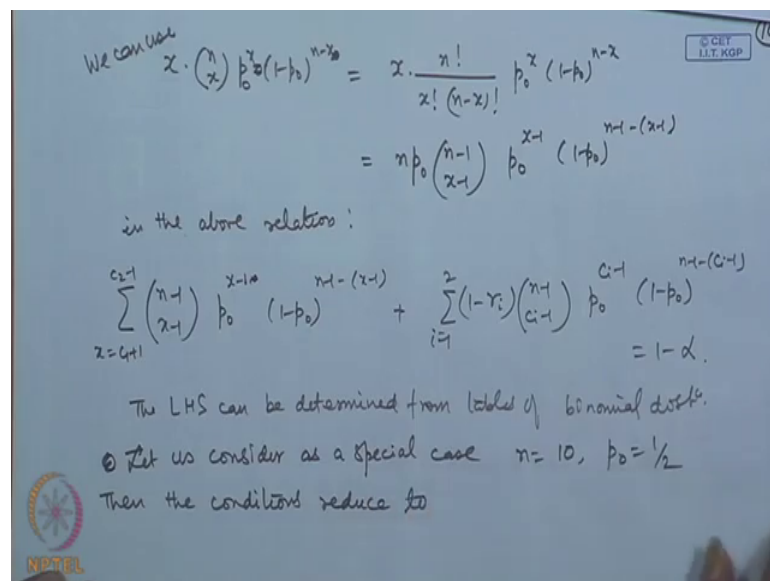 We can use x · (n x) p₀ˣ (1-p₀)ⁿ⁻ˣ = x · n! / x! (n-x)! p₀ˣ (1-p₀)ⁿ⁻ˣ
© CET
I.I.T. KGP
= n p₀ (n-1 x-1) p₀^{x-1} (1-p₀)^{n-1-(x-1)}
in the above relation:
∑_{x=c₁+1}^{c₂-1} (n-1 x-1) p₀^{x-1} (1-p₀)^{n-1-(x-1)} + ∑_{i=1}^{2} (1-γᵢ) (n-1 cᵢ-1) p₀^{cᵢ-1} (1-p₀)^{n-1-(cᵢ-1)}
= 1-α.
The LHS can be determined from tables of binomial distⁿ.
Let us consider as a special case n= 10, p₀ = 1/2
Then the conditions reduce to
NPTEL